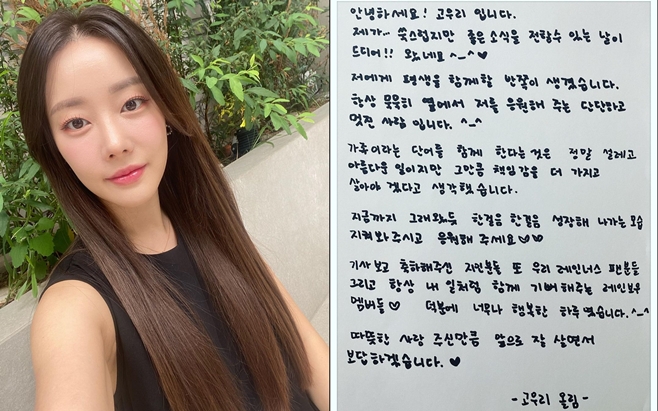 안녕하세요! 고우리 입니다.
제가.. 쑥스럽지만 좋은 소식을 전할수 있는 날이
드디어!! 왔네요 ^_^ ♥
저에게 평생을 함께할 반쪽이 생겼습니다.
항상 묵묵히 옆에서 저를 응원해 주는 단단하고
멋진 사람 입니다. ^_^
가족이라는 단어를 함께 한다는것은 정말 설레고
아름다운 일이지만 그만큼 책임감을 더 가지고
살아야 겠다고 생각했습니다.
지금까지 그래왔듯 한걸음 한걸음 성장해 나가는 모습
지켜봐 주시고 응원해 주세요♡♡
기사보고 축하해주신 지인분들 또 우리 레인너스 팬분들
그리고 항상 내 일처럼 함께 기뻐해주는 레인보우
멤버들♡ 덕분에 너무나 행복한 하루 였습니다.^_^
따뜻한 사랑 주신만큼 앞으로 잘 살면서
보답하겠습니다. ♥
-고우리 올림-